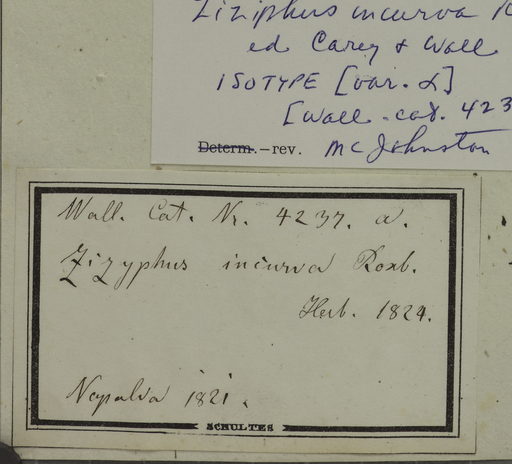 Ziziphus incurva R
ed Carey & Wall
ISOTYPE [var. α]
[Wall. cat. 423
Determ.—rev. MC Johnston
Wall. Cat. Nr. 4237. a.
Zizyphus incurva Roxb.
Herb. 1824.
Nepalia 1821.
SCHULTES